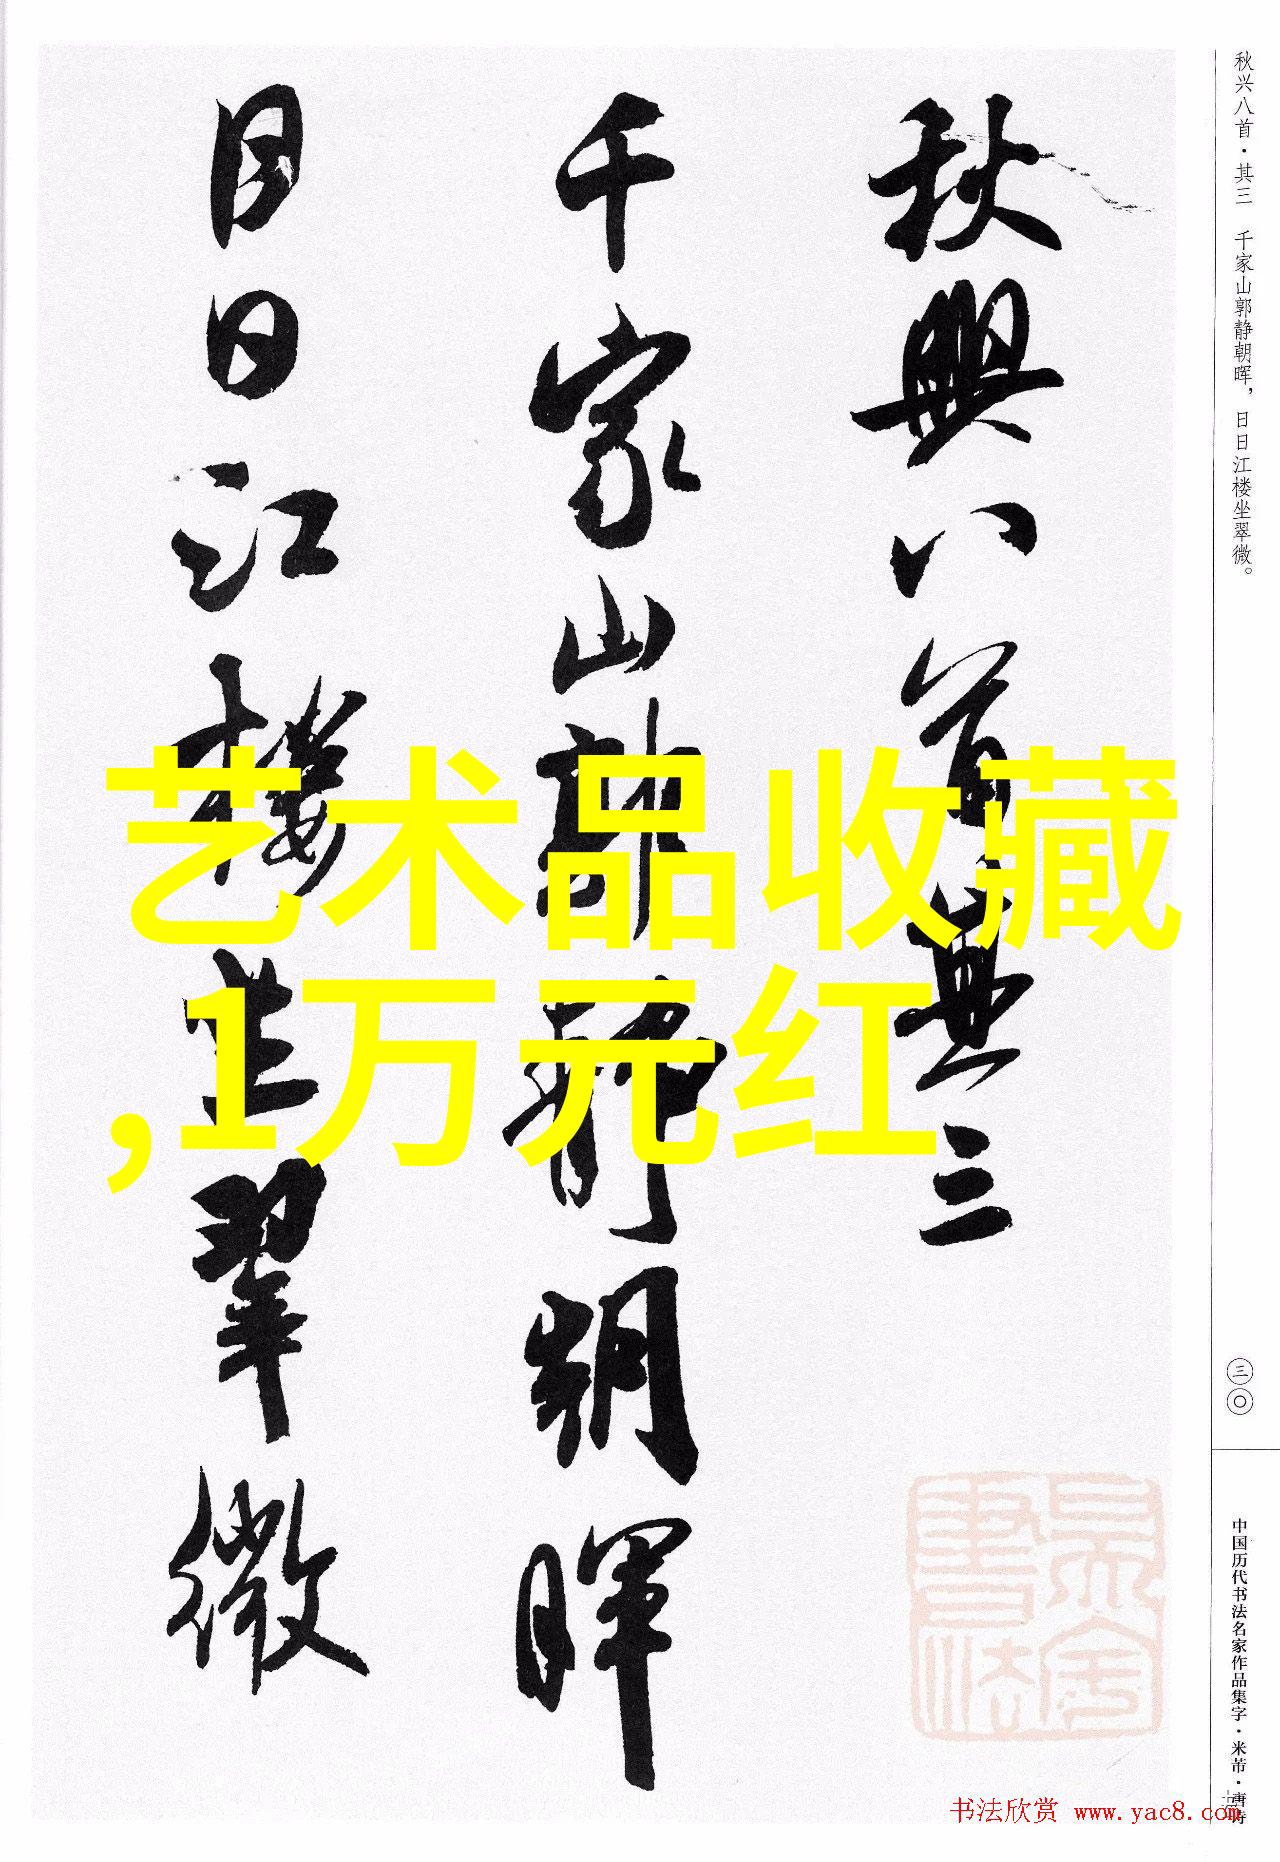 秋兴八首·其三　千家山郭静朝晖，日日江楼坐翠微。
秋興八首其三
千家山郭静朝暉
日日江樓坐翠微
艺术品收藏
,1万元红
三〇
中国历代书法名家作品集字·米芾·唐诗
书法欣赏 www.yac8.com